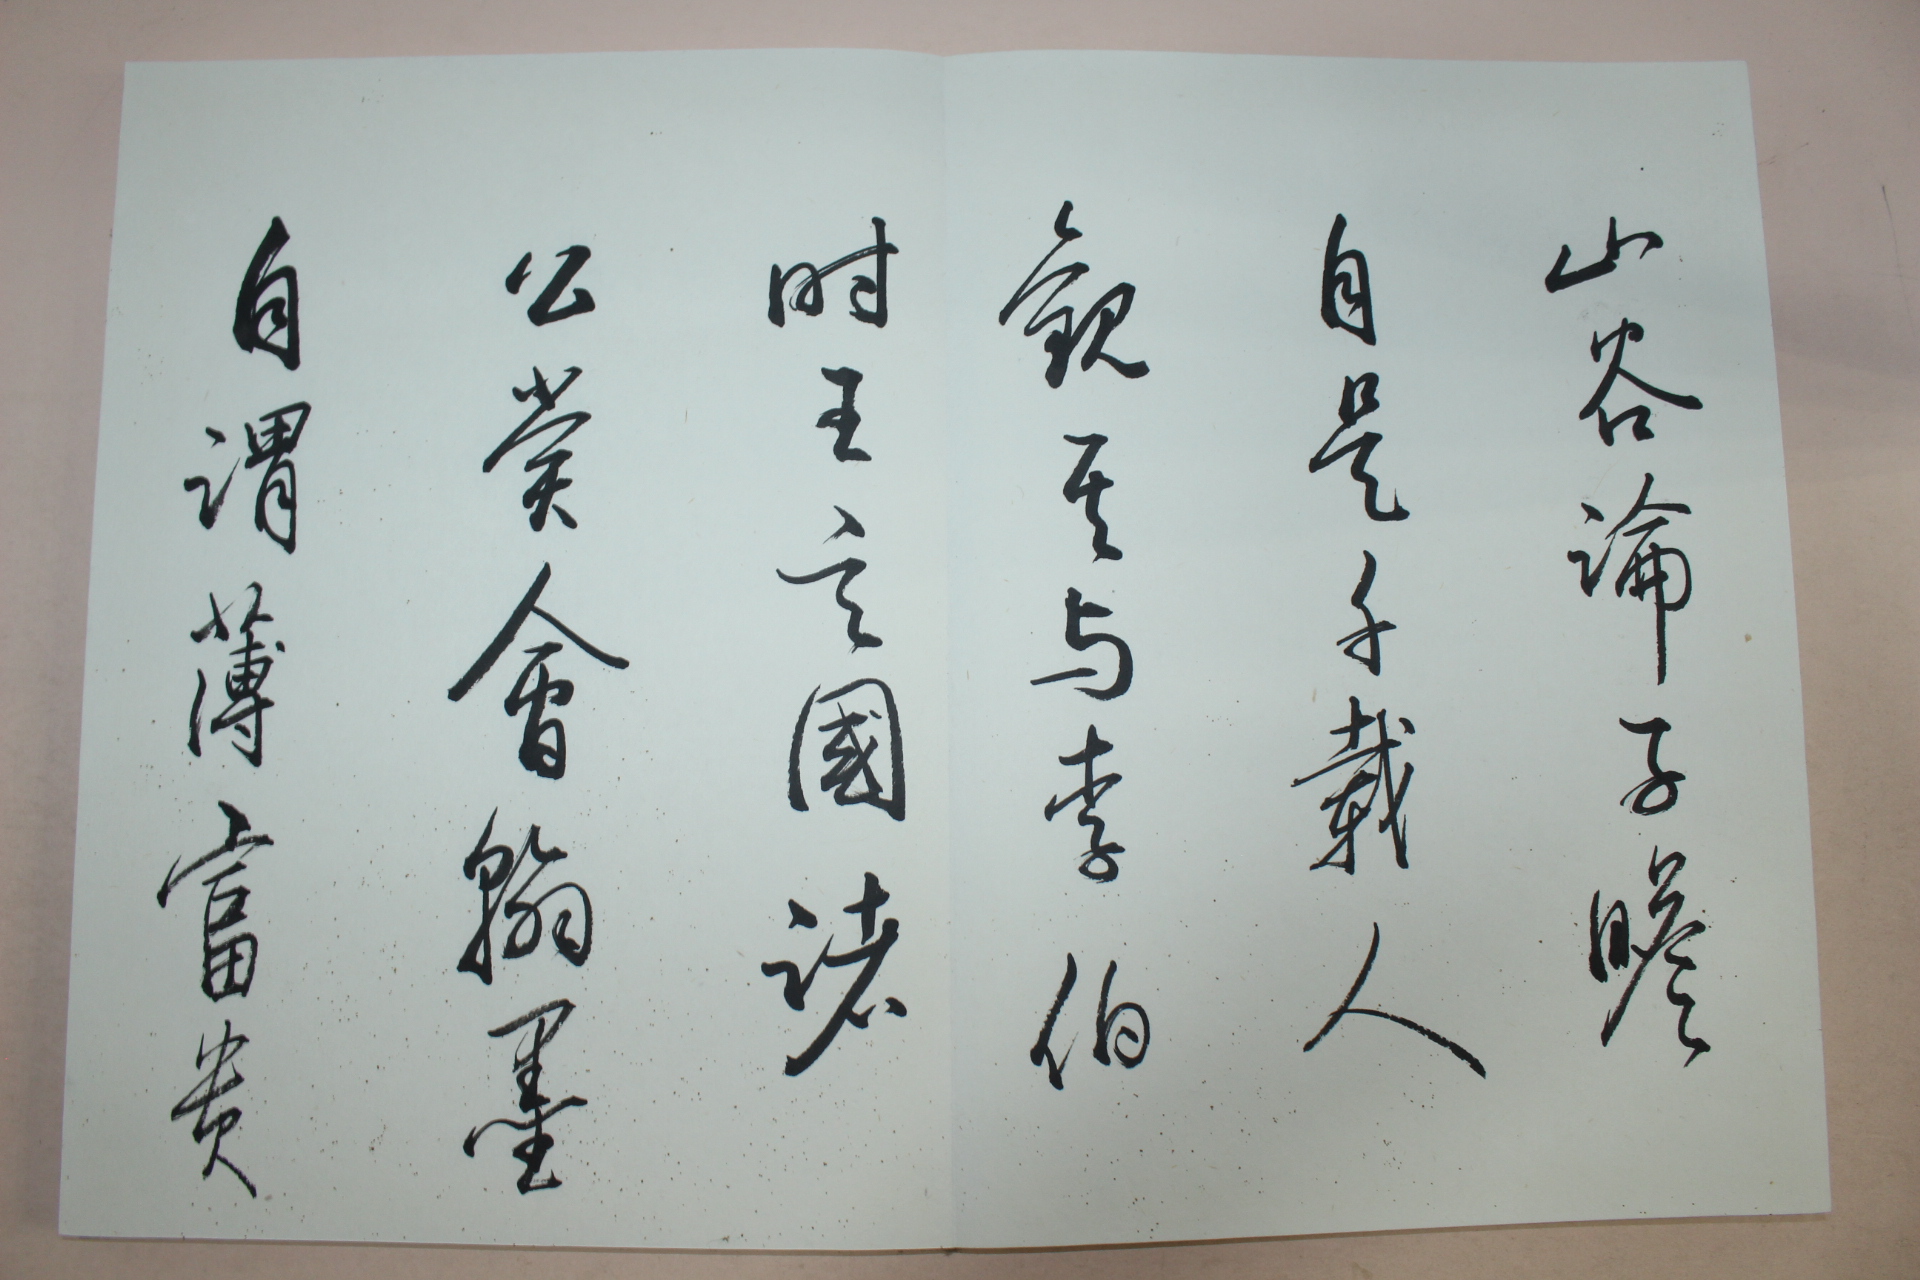 山谷論子瞻
自是千載人
觀其与李伯
时王立國諸
公賞會翰墨
自謂薄富貴